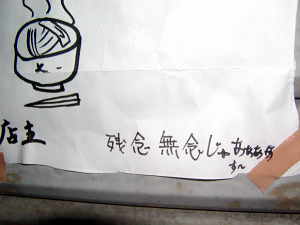 店主
残念無念じゃあぁあぁ
す〜